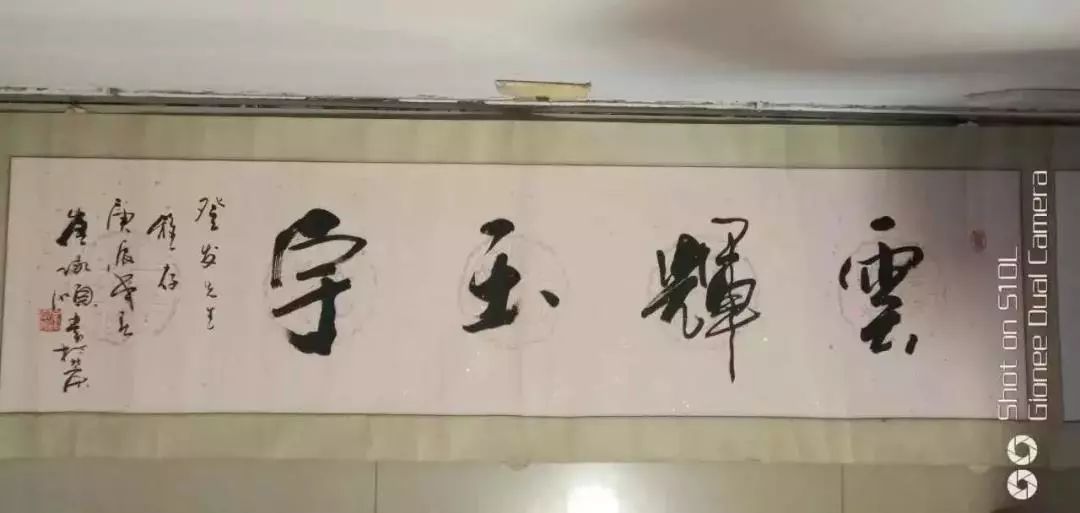 雲輝玉宇
發友先生
雅存
庚辰夏云
Shot on S10L
Gionee Dual Camera